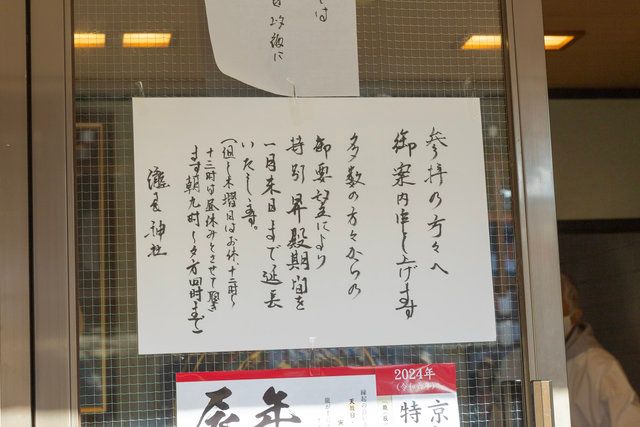 参拝の方々へ
御案内申し上げます
多数の方々からの
御要望により
特別昇殿期間を
一月末日まで延長
いたします。
(但し木曜日はお休 十二時〜
十三時は昼休みとさせて頂き
ます朝九時〜夕方四時まで)
瀧尾神社
2024年
(令和六年)
京
特
辰年